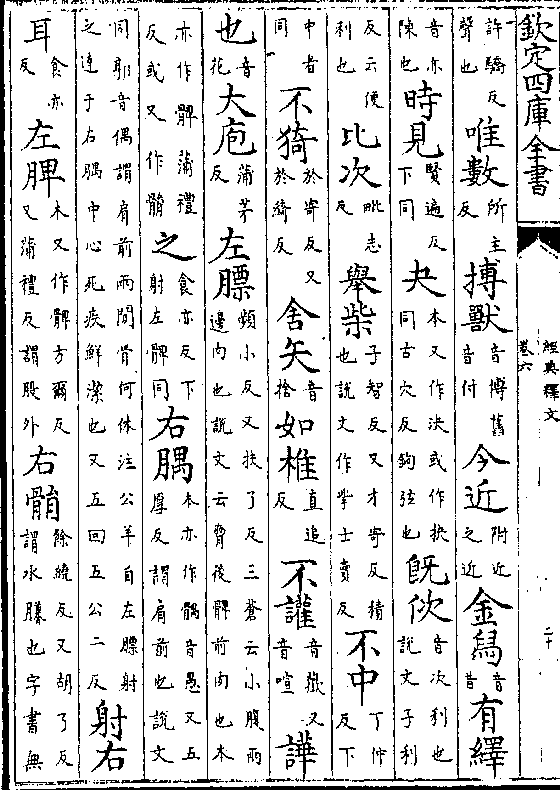 欽定四庫全書
經典釋文
卷六
二十
許驕反聲也唯數所主反搏獸音博舊音付今近附近之近金舄音昔有繹
音亦陳也時見賢遍反下同夬本又作決或作抉同古穴反鉤弦也既佽音次利也說文子利
反云便利也比次毗志反舉柴子智反又才寄反積也說文作㧘士賣反不中丁仲反下
中者同不猗於寄反又於綺反舍矢音捨如椎直追反不讙音歡又音喧譁
也音花大庖蒲茅反左膘頻小反又扶了反三蒼云小腹兩邊肉也說文云脅後髀前肉也本
亦作髀蒲禮反或又作䯚之食亦反下射左髀同右腢本亦作髃音愚又五厚反謂肩前也說文
同郭音偶謂肩前兩閒骨何休注公羊自左膘射之達于右腢中心死疾鮮潔也又五回五公二反射右
耳食亦反左脾本又作髀方爾反又蒲禮反謂股外右䯚餘繞反又胡了反謂水膁也字書無